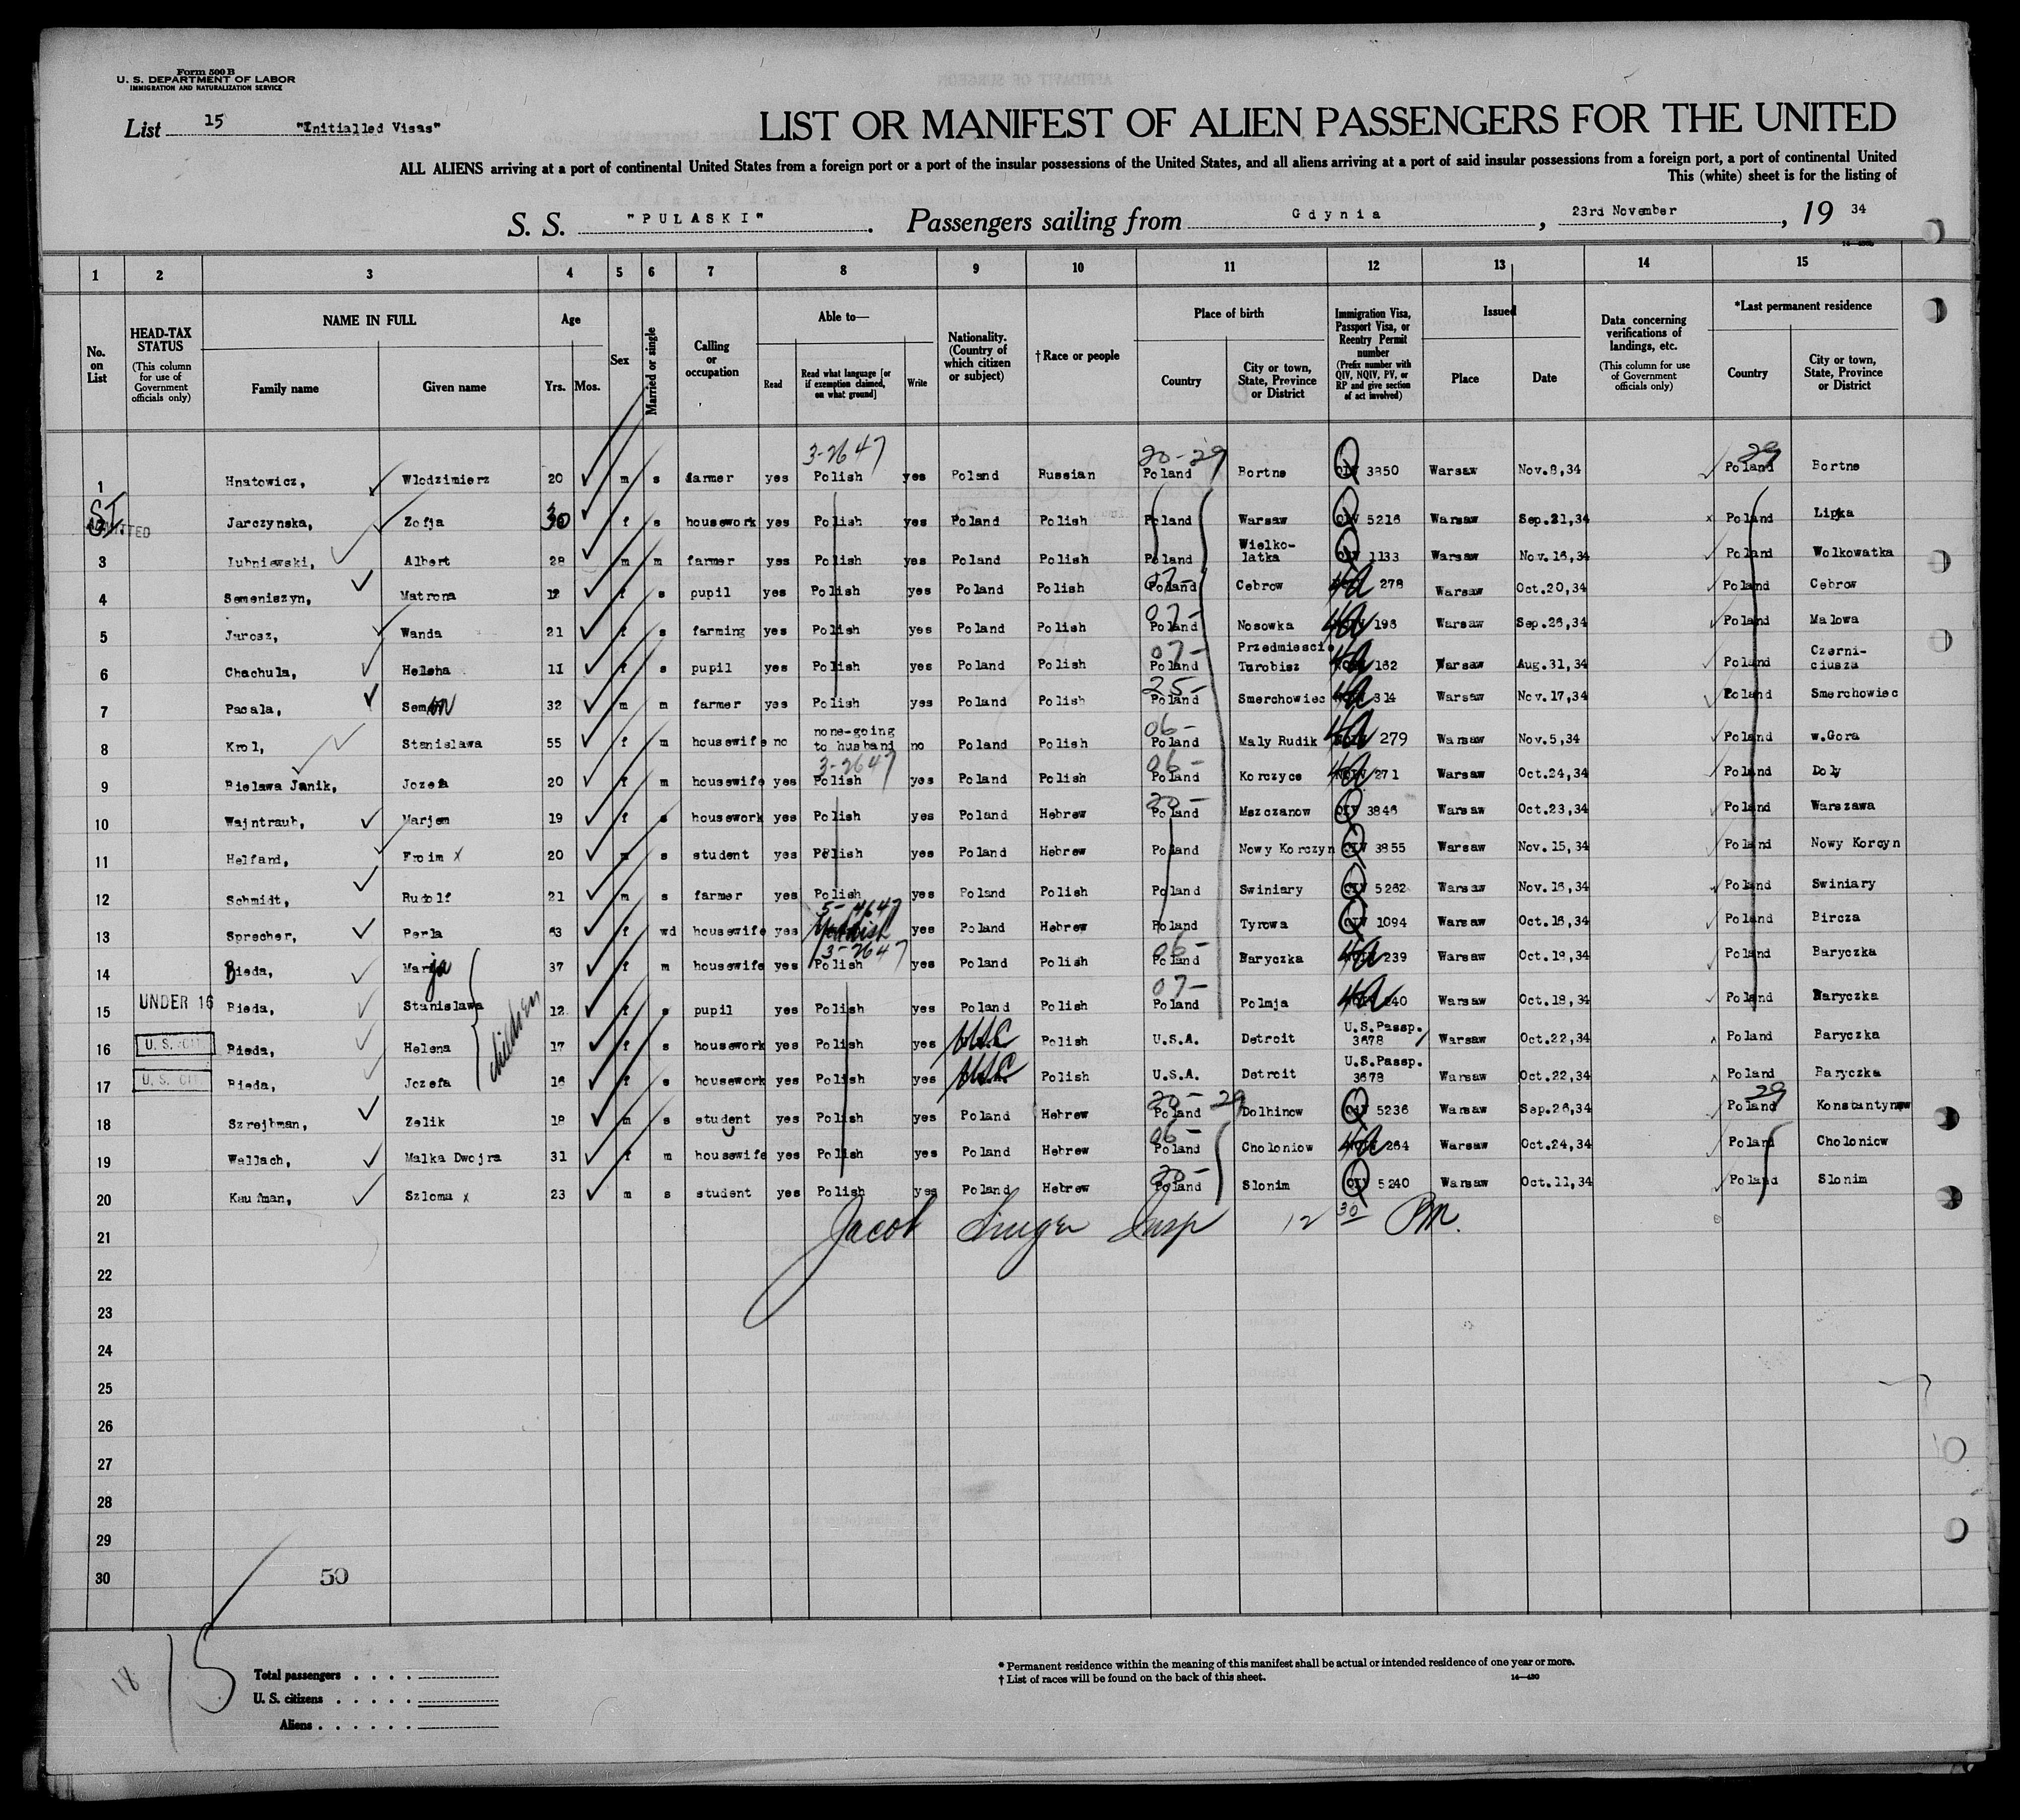 Form 500 B
U. S. DEPARTMENT OF LABOR
IMMIGRATION AND NATURALIZATION SERVICE
List 15 "Initialled Visas"
LIST OR MANIFEST OF ALIEN PASSENGERS FOR THE UNITED
ALL ALIENS arriving at a port of continental United States from a foreign port or a port of the insular possessions of the United States, and all aliens arriving at a port of said insular possessions from a foreign port, a port of continental United
This (white) sheet is for the listing of
S. S. "PULASKI". Passengers sailing from Gdynia, 23rd November, 19 34
1 2 3 4 5 6 7 8 9 10 11 12 13 14 15
No. on List
HEAD-TAX STATUS (This column for use of Government officials only)
NAME IN FULL Family name Given name
Age Yrs. Mos.
Sex
Married or single
Calling or occupation
Able to— Read Read what language [or if exemption claimed, on what ground] Write
Nationality. (Country of which citizen or subject)
† Race or people
Place of birth Country City or town, State, Province or District
Immigration Visa, Passport Visa, or Reentry Permit number (Prefix number with QIV, NQIV, PV, or RP and give section of act involved)
Issued Place Date
Data concerning verifications of landings, etc. (This column for use of Government officials only)
*Last permanent residence Country City or town, State, Province or District
3-2647 20-29 29
1 Hnatowicz, Wlodzimierz 20 m s farmer yes Polish yes Poland Russian Poland Bortne Q 3850 Warsaw Nov.8,34 Poland Bortne
SI ADMITTED Jarczynska, Zofja 30 f s housework yes Polish yes Poland Polish Poland Warsaw Q 5216 Warsaw Sep.21,34 Poland Lipka
3 Lubniewski, Albert 28 m m farmer yes Polish yes Poland Polish Poland Wielko-latka Q 1133 Warsaw Nov.16,34 Poland Wolkowatka
4 Semeniszyn, Matrona 12 f s pupil yes Polish yes Poland Polish 07- Poland Cebrow 4a 278 Warsaw Oct.20,34 Poland Cebrow
5 Jarosz, Wanda 21 f s farming yes Polish yes Poland Polish 07- Poland Nosowka 4a 196 Warsaw Sep.26,34 Poland Malowa
6 Chachula, Helena 11 f s pupil yes Polish yes Poland Polish 07- Poland Przedmiescie Turobisz 4a 162 Warsaw Aug.31,34 Poland Czerni-ciusza
7 Pacala, Semon 32 m m farmer yes Polish yes Poland Polish 25- Poland Smerchowiec 4a 314 Warsaw Nov.17,34 Poland Smerchowiec
8 Krol, Stanislawa 55 f m housewife no none-going to husband no Poland Polish 06- Poland Maly Rudik 4a 279 Warsaw Nov.5,34 Poland w.Gora
9 Bielawa Janik, Jozefa 20 f m housewife yes 3-2647 Polish yes Poland Polish 06- Poland Korczyce 4a 271 Warsaw Oct.24,34 Poland Doly
10 Wajntraub, Marjem 19 f s housework yes Polish yes Poland Hebrew 20- Poland Mszczanow Q 3846 Warsaw Oct.23,34 Poland Warszawa
11 Helfand, Froim x 20 m s student yes Polish yes Poland Hebrew Poland Nowy Korczyn Q 3855 Warsaw Nov.15,34 Poland Nowy Korcyn
12 Schmidt, Rudolf 21 m s farmer yes Polish yes Poland Polish Poland Swiniary Q 5262 Warsaw Nov.16,34 Poland Swiniary
13 Sprecher, Perla 63 f wd housewife yes 5-4647 yes Poland Hebrew Poland Tyrowa Q 1094 Warsaw Oct.16,34 Poland Bircza
14 Bieda, Marija 37 f m housewife yes 3-2647 Polish yes Poland Polish 06- Poland Baryczka 4a 239 Warsaw Oct.18,34 Poland Baryczka
children
15 UNDER 16 Bieda, Stanislawa 12 f s pupil yes Polish yes Poland Polish 07- Poland Polmja 4a 240 Warsaw Oct.18,34 Poland Baryczka
16 U. S. CIT Bieda, Helena 17 f s housework yes Polish yes USC Polish U.S.A. Detroit U.S.Passp. 3678 Warsaw Oct.22,34 Poland Baryczka
17 U. S. CIT Bieda, Jozefa 16 f s housework yes Polish yes USC Polish U.S.A. Detroit U.S.Passp. 3678 Warsaw Oct.22,34 Poland Baryczka
18 Szrejbman, Zelik 18 m s student yes Polish yes Poland Hebrew 20-29 Poland Dolhinow Q 5236 Warsaw Sep.26,34 29 Poland Konstantynow
19 Wallach, Malka Dwojra 31 f m housewife yes Polish yes Poland Hebrew 06- Poland Choloniow 4a 264 Warsaw Oct.24,34 Poland Choloniow
20 Kaufman, Szloma x 23 m s student yes Polish yes Poland Hebrew 20- Poland Slonim Q 5240 Warsaw Oct.11,34 Poland Slonim
Jacob Insp 12 30 PM.
21
22
23
24
25
26
27
28
29
30 50
15
18
Total passengers
U. S. citizens
Aliens
* Permanent residence within the meaning of this manifest shall be actual or intended residence of one year or more.
† List of races will be found on the back of this sheet. 14—430